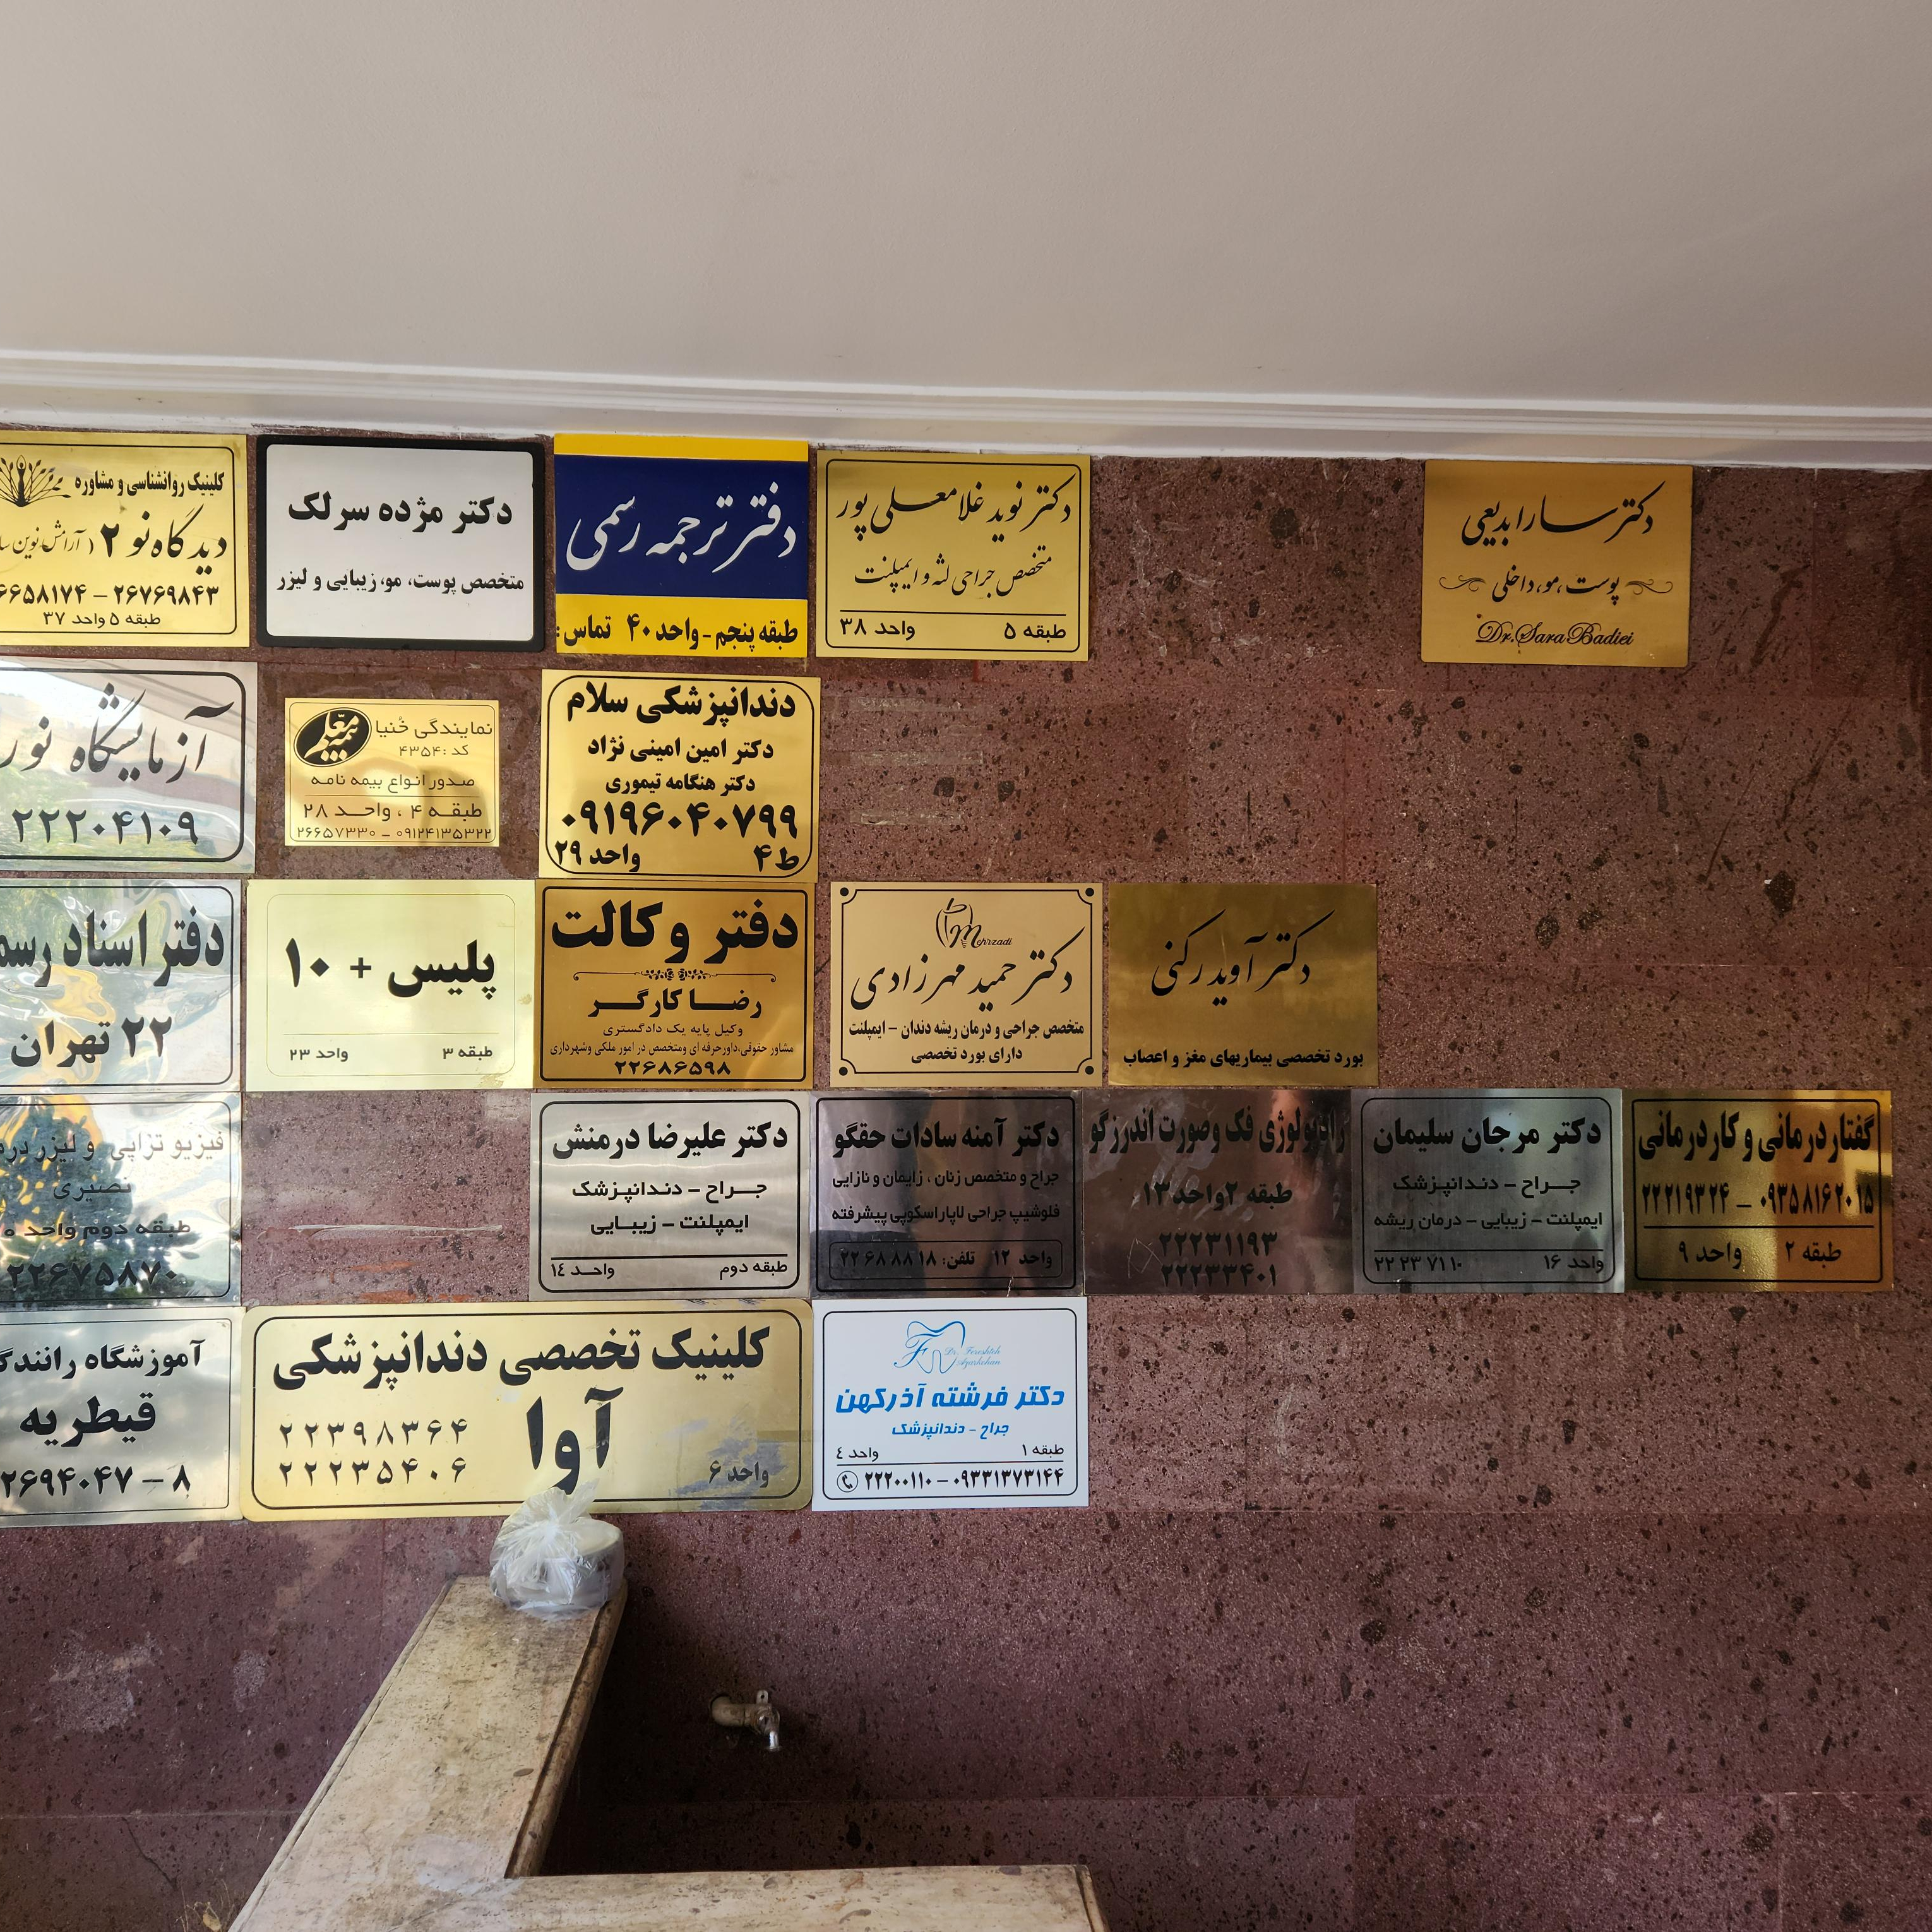 کلینیک روانشناسی و مشاوره
دیدگاه نو ۲
۶۶۵۸۱۷۴ – ۲۶۷۶۹۸۴۳
طبقه ۵ واحد ۳۷
دکتر مژده سرلک
متخصص پوست، مو، زیبایی و لیزر
دفتر ترجمه رسمی
طبقه پنجم - واحد ۴۰ تماس:
دکتر نوید غلامعلی پور
متخصص جراحی لثه و ایمپلنت
طبقه ۵ واحد ۳۸
دکتر سارا بدیعی
پوست، مو، داخلی
Dr. Sara Badiei
آزمایشگاه نور
۲۲۲۰۴۱۰۹
بیمه معلم
نمایندگی خُنیا
کد : ۴۳۵۴
صدور انواع بیمه نامه
طبقه ۴ ، واحد ۲۸
۲۶۶۵۷۳۳۰ – ۰۹۱۲۴۱۳۵۳۲۲
دندانپزشکی سلام
دکتر امین امینی نژاد
دکتر هنگامه تیموری
۰۹۱۹۶۰۴۰۷۹۹
ط ۴ واحد ۲۹
دفتر اسناد رسم
۲۲ تهران
پلیس + ۱۰
طبقه ۳ واحد ۲۳
دفتر وکالت
رضا کارگر
وکیل پایه یک دادگستری
مشاور حقوقی،داورحرفه ای ومتخصص در امور ملکی وشهرداری
۲۲۶۸۶۵۹۸
Mehrzadi
دکتر حمید مهرزادی
متخصص جراحی و درمان ریشه دندان – ایمپلنت
دارای بورد تخصصی
دکتر آوید رکنی
بورد تخصصی بیماریهای مغز و اعصاب
فیزیو تراپی و لیزر درم
نصیری
طبقه دوم واحد
۲۲۶۷۵۸۷۰
دکتر علیرضا درمنش
جراح – دندانپزشک
ایمپلنت – زیبایی
طبقه دوم واحد ۱٤
دکتر آمنه سادات حقگو
جراح و متخصص زنان ، زایمان و نازایی
فلوشیپ جراحی لاپاراسکوپی پیشرفته
واحد ۱۲ تلفن: ۲۲ ۶۸ ۸۸ ۱۸
رادیولوژی فک وصورت اندرزگو
طبقه ۲ واحد ۱۳
۲۲۲۳۱۱۹۳
۲۲۲۳۳۴۰۱
دکتر مرجان سلیمان
جراح – دندانپزشک
ایمپلنت – زیبایی – درمان ریشه
واحد ۱۶ ۲۲ ۲۳ ۷۱ ۱۰
گفتاردرمانی و کاردرمانی
۲۲۲۱۹۳۲۴ – ۰۹۳۵۸۱۶۲۰۱۵
طبقه ۲ واحد ۹
آموزشگاه رانندگ
قیطریه
۲۶۹۴۰۴۷ – ۸
کلینیک تخصصی دندانپزشکی
آوا
۲۲۳۹۸۳۶۴
۲۲۲۳۵۴۰۶
واحد ۶
Dr. Fereshteh
Azarkohan
دکتر فرشته آذرکهن
جراح – دندانپزشک
طبقه ۱ واحد ٤
۲۲۲۰۰۱۱۰ – ۰۹۳۳۱۳۷۳۱۴۴